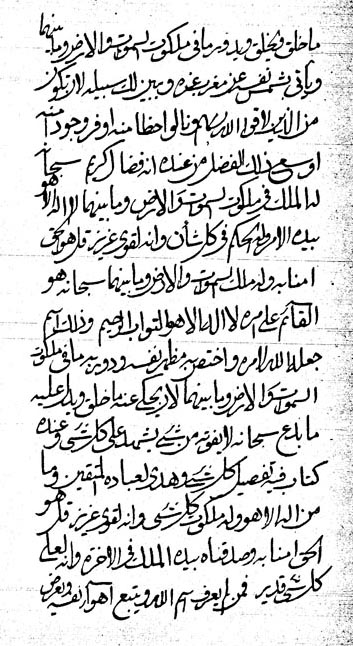 ما خلق ويخلق ويدوبه ما في ملكوت السموات والارض وما بينهما
وياتي شمس نفسه عن مغرب عنده ويبين لك سبيله لان تكونن
من الذين لاقوا الله ربهم ونالوا حظا منه اوفر وجودا منه
اوسع ذلك الفضل من عنده انه فضال كريم سبحانه
له الملك في ملكوت السموات والارض وما بينهما لا اله الا هو
بيده الامر وله الحكم في كل شأن وانه لقوي عزيز قل هو الحق
امنا به وله ملك السموات والارض وما بينهما سبحانه هو
القائم على امره لا اله الا هو التواب الرحيم وذلك اسم
جعله الله امره واختص به مظهر نفسه ودون به ما في ملكوت
السموات والارض وما بينهما لا يحكي عنه ما خلق ويدل عليه
ما بدع سبحانه لا يفوته من شيء يشهد على كل شيء وعنده
كتاب فيه تفصيل كل شيء وهدى لعباده المتقين وما
من اله الا هو وله ملكوت كل شيء وانه لقوي عزيز قل هو
الحق امنا به وصدقناه بيده الملك في الاخرة وانه لعلى
كل شيء قدير فمن لم يعرف اسم الله ويتبع أهواء نفسه ويعرض